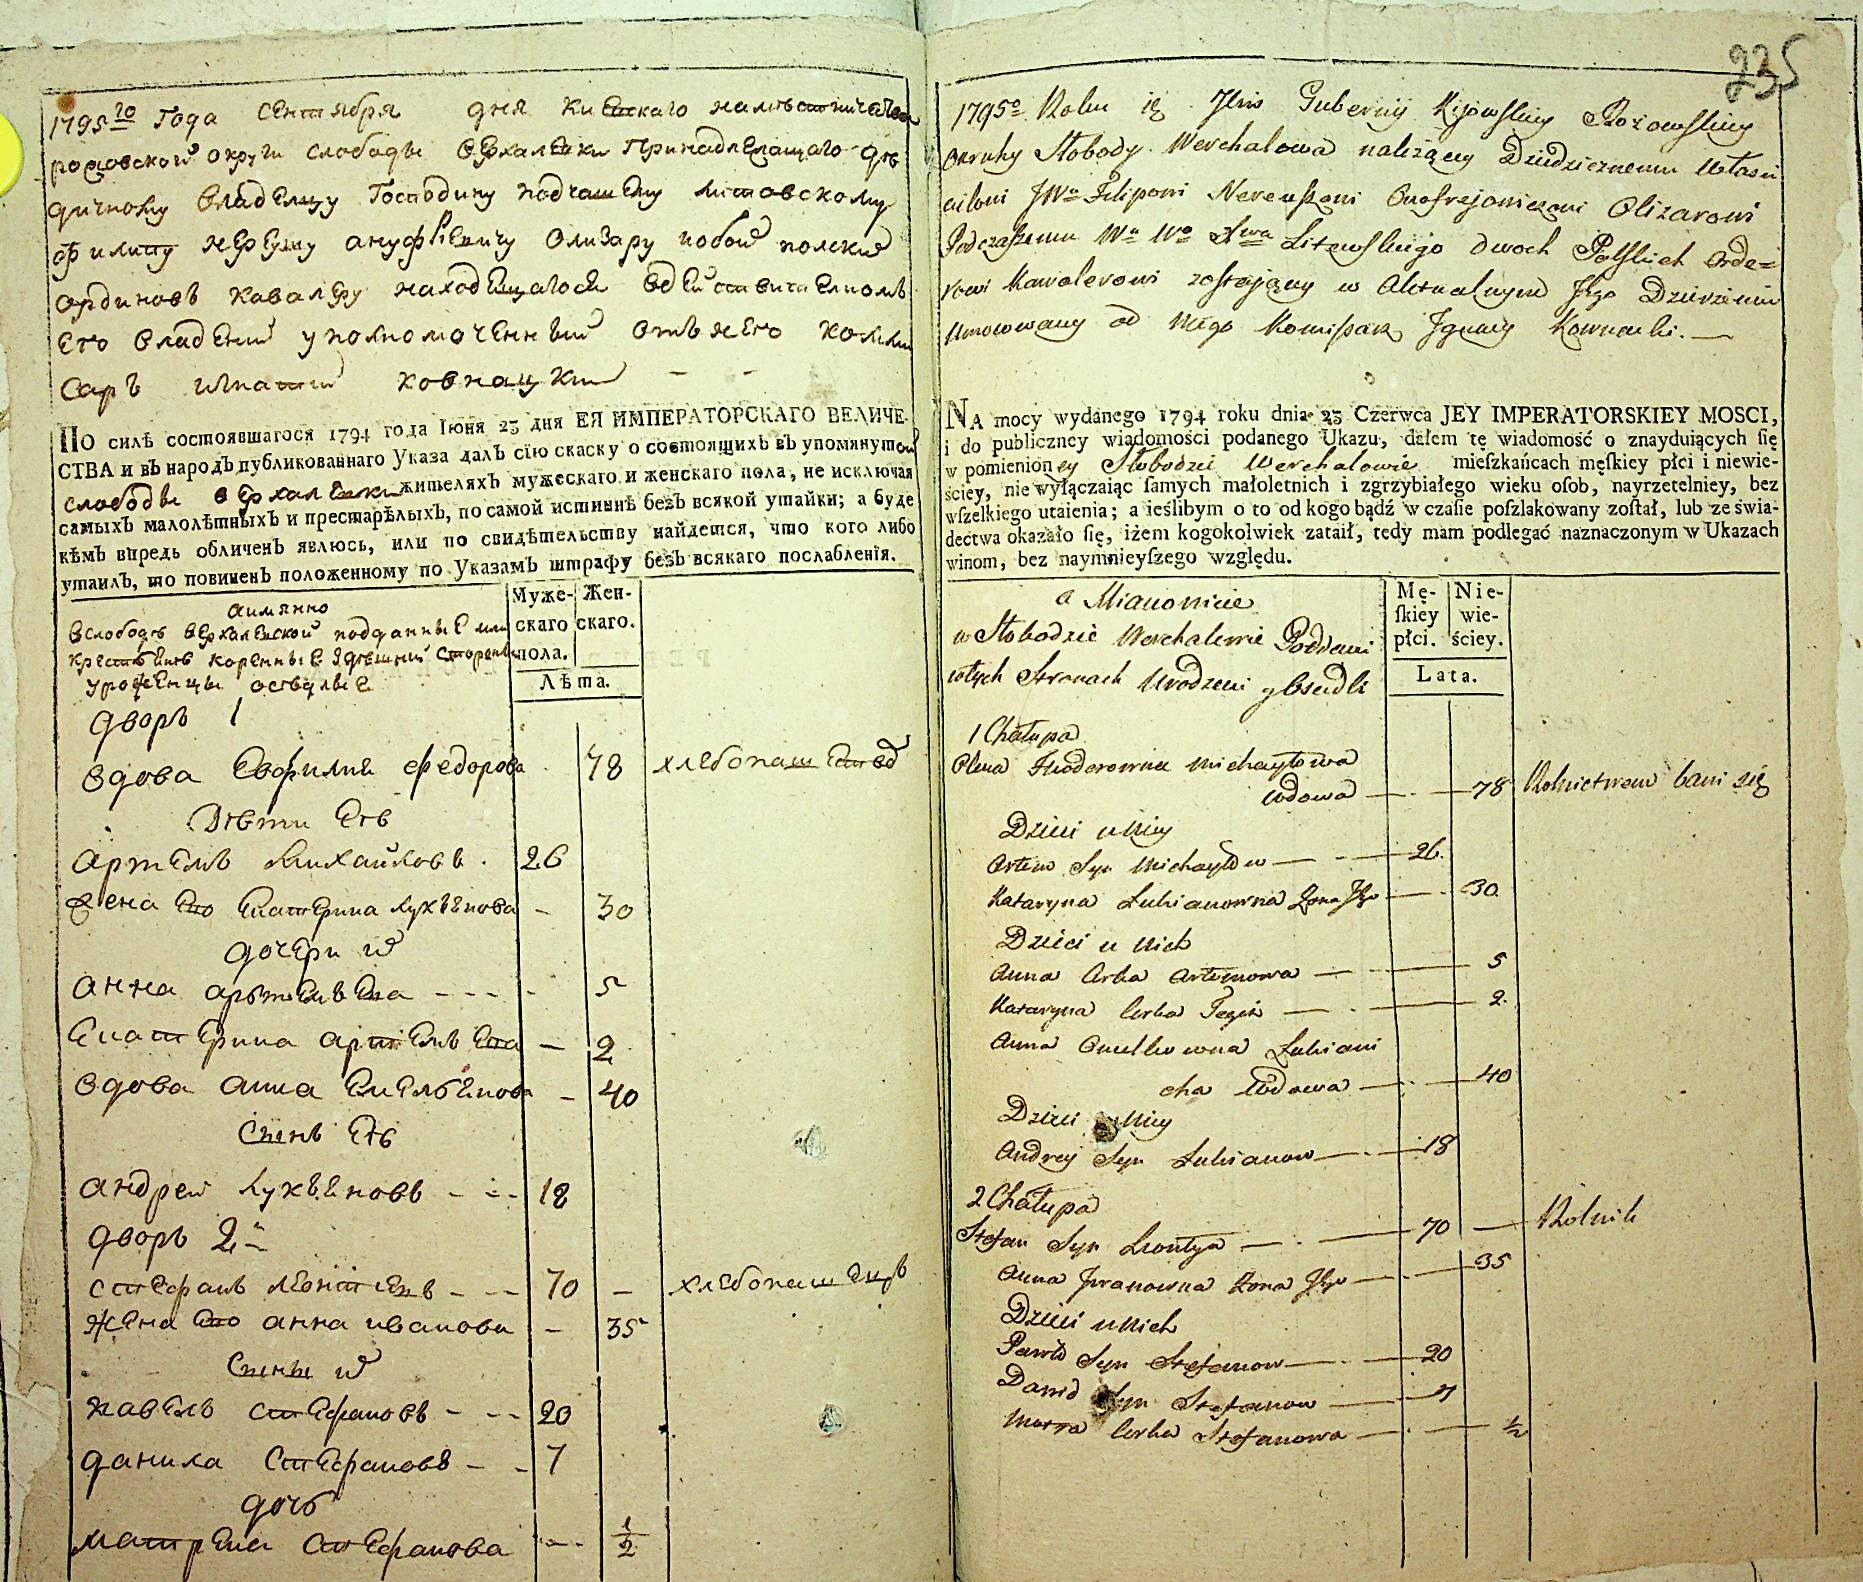 1795го Года Сентября дня Киевского наместничества
округи слободы Верхалевки принадлежащаго дѣ
дичному владелцу Господину подчашему литовскому
Филипу Нереушу ануфрiевичу Олизару обоих полских
ординовъ кавалеру находящагося в действителномъ
его владении уполномоченный отъ него комми
саръ игнатий ковнацкий - -
По силѣ состоявшагося 1794 года Iюня 23 дня ЕЯ ИМПЕРАТОРСКАГО ВЕЛИЧЕ-
СТВА и въ народъ публикованнаго Указа далъ сiю скаску о состоящихъ въ упомянутой
слободы верхалевки жителяхъ мужескаго и женскаго пола, не исключая
самыхъ малолѣтныхъ и престарѣлыхъ, по самой истиннѣ безъ всякой утайки; а буде
кѣмъ впредь обличенъ явлюсь, или по свидѣтельству найдется, что кого либо
утаилъ, то повиненъ положенному по Указамъ штрафу безъ всякаго послабленiя.
аимянно
Муже-
скаго
пола.
Жен-
скаго.
Лѣта.
в слободе верхалевской подданные или
крестьяне коренные здешний стороны
уроженцы оседлые
дворъ 1
вдова Евфимия федорова 78 хлебопашествод
Дѣти Еѣ
артемъ михайловъ . 26
жена Его Екатерина лукъянова - 30
дочери их
анна артемьева - - - - 5
Екатерина артемьева - 2
вдова анна Емельянова - 40
Сынъ Еѣ
андрей лукъяновъ - - - 18
дворъ 2й
стефанъ леонтиевъ - - - 70 - хлебопашецъ
жена Его анна иванова - 35
Сыны их
павелъ стефановъ - - - 20
данила стефановъ - - 7
дочь
матрена стефанова - - - 1/2
235
1795o Roku Dnia Gubernij Kijowskiey
okruhy Słobody Werchalowa należącey Dziedzicznemu Własci
cielowi JWu Filipowi Nereuszowi Onofrejowiczowi Olizarowi
Podczaszemu Wu Wo Xtwa Litewskiego dwoch Polskich Orde=
rowi Kawalerowi zostającey w Aktualnym Jego Dzierżeniu
umocowany od niego Komisarz Ignacy Kownacki. —
NA mocy wydanego 1794 roku dnia 23 Czerwca JEY IMPERATORSKIEY MOSCI,
i do publiczney wiadomości podanego Ukazu, dałem tę wiadomość o znayduiących ſię
w pomienioney Słobodzie Werchalowie mieſzkańcach męſkiey płci i niewie-
ściey, nie wyłączaiąc ſamych małoletnich i zgrzybiałego wieku oſob, nayrzetelniey, bez
wſzelkiego utaienia; a ieślibym o to od kogo bądź w czaſie poſzlakowany zoſtał, lub ze świa-
dectwa okazało ſię, iżem kogokolwiek zataił, tedy mam podlegać naznaczonym w Ukazach
winom, bez naymnieyſzego względu.
a Mianowicie
Mę-
ſkiey
płci.
Nie-
wie-
ściey.
Lata.
w Słobodzie Werchalewie Poddani
w tych Stronach Urodzeni y Osiedli
1 Chałupa
Olena Theodorowna Michayłowa
wdowa — 78 Rolnictwem bawi się
Dzieci u Niey
Artem Syn Michayłow — 26
Kataryna Lukianowna Żona Jego — 30
Dzieci u Nich
Anna Corka Artemowa — 5
Kataryna Corka Tegoż — 2
Anna Omelkowna Lukiani
cha Wdowa — 40
Dzieci u Niey
Andrey Syn Lukianow — 18
2 Chałupa
Stefan Syn Leontya — 70 — Rolnik
Anna Jwanowna Żona Jego — 35
Dzieci u Nich
Pawło Syn Stefanow — 20
Daniło Syn Stefanow — 7
Motra Corka Stefanowa — 1/2